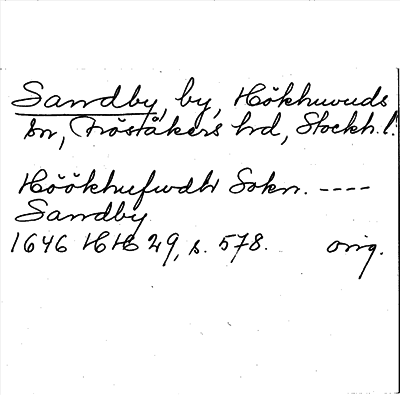 Sandby, by, Hökhuvuds
sn, Frösåkers hd, Stockh. l.
Höökhufwdh Sokn. ----
Sandby
1646 HH 29, s. 578. orig.